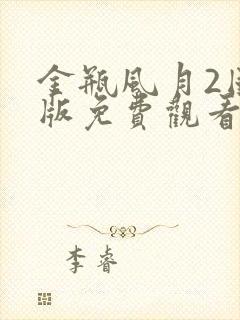 金瓶風月2
版免費觀看
李睿